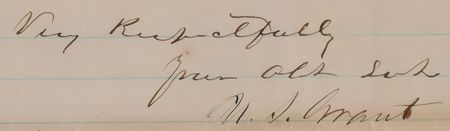 Very Respectfully
Your Obt Svt
U. S. Grant